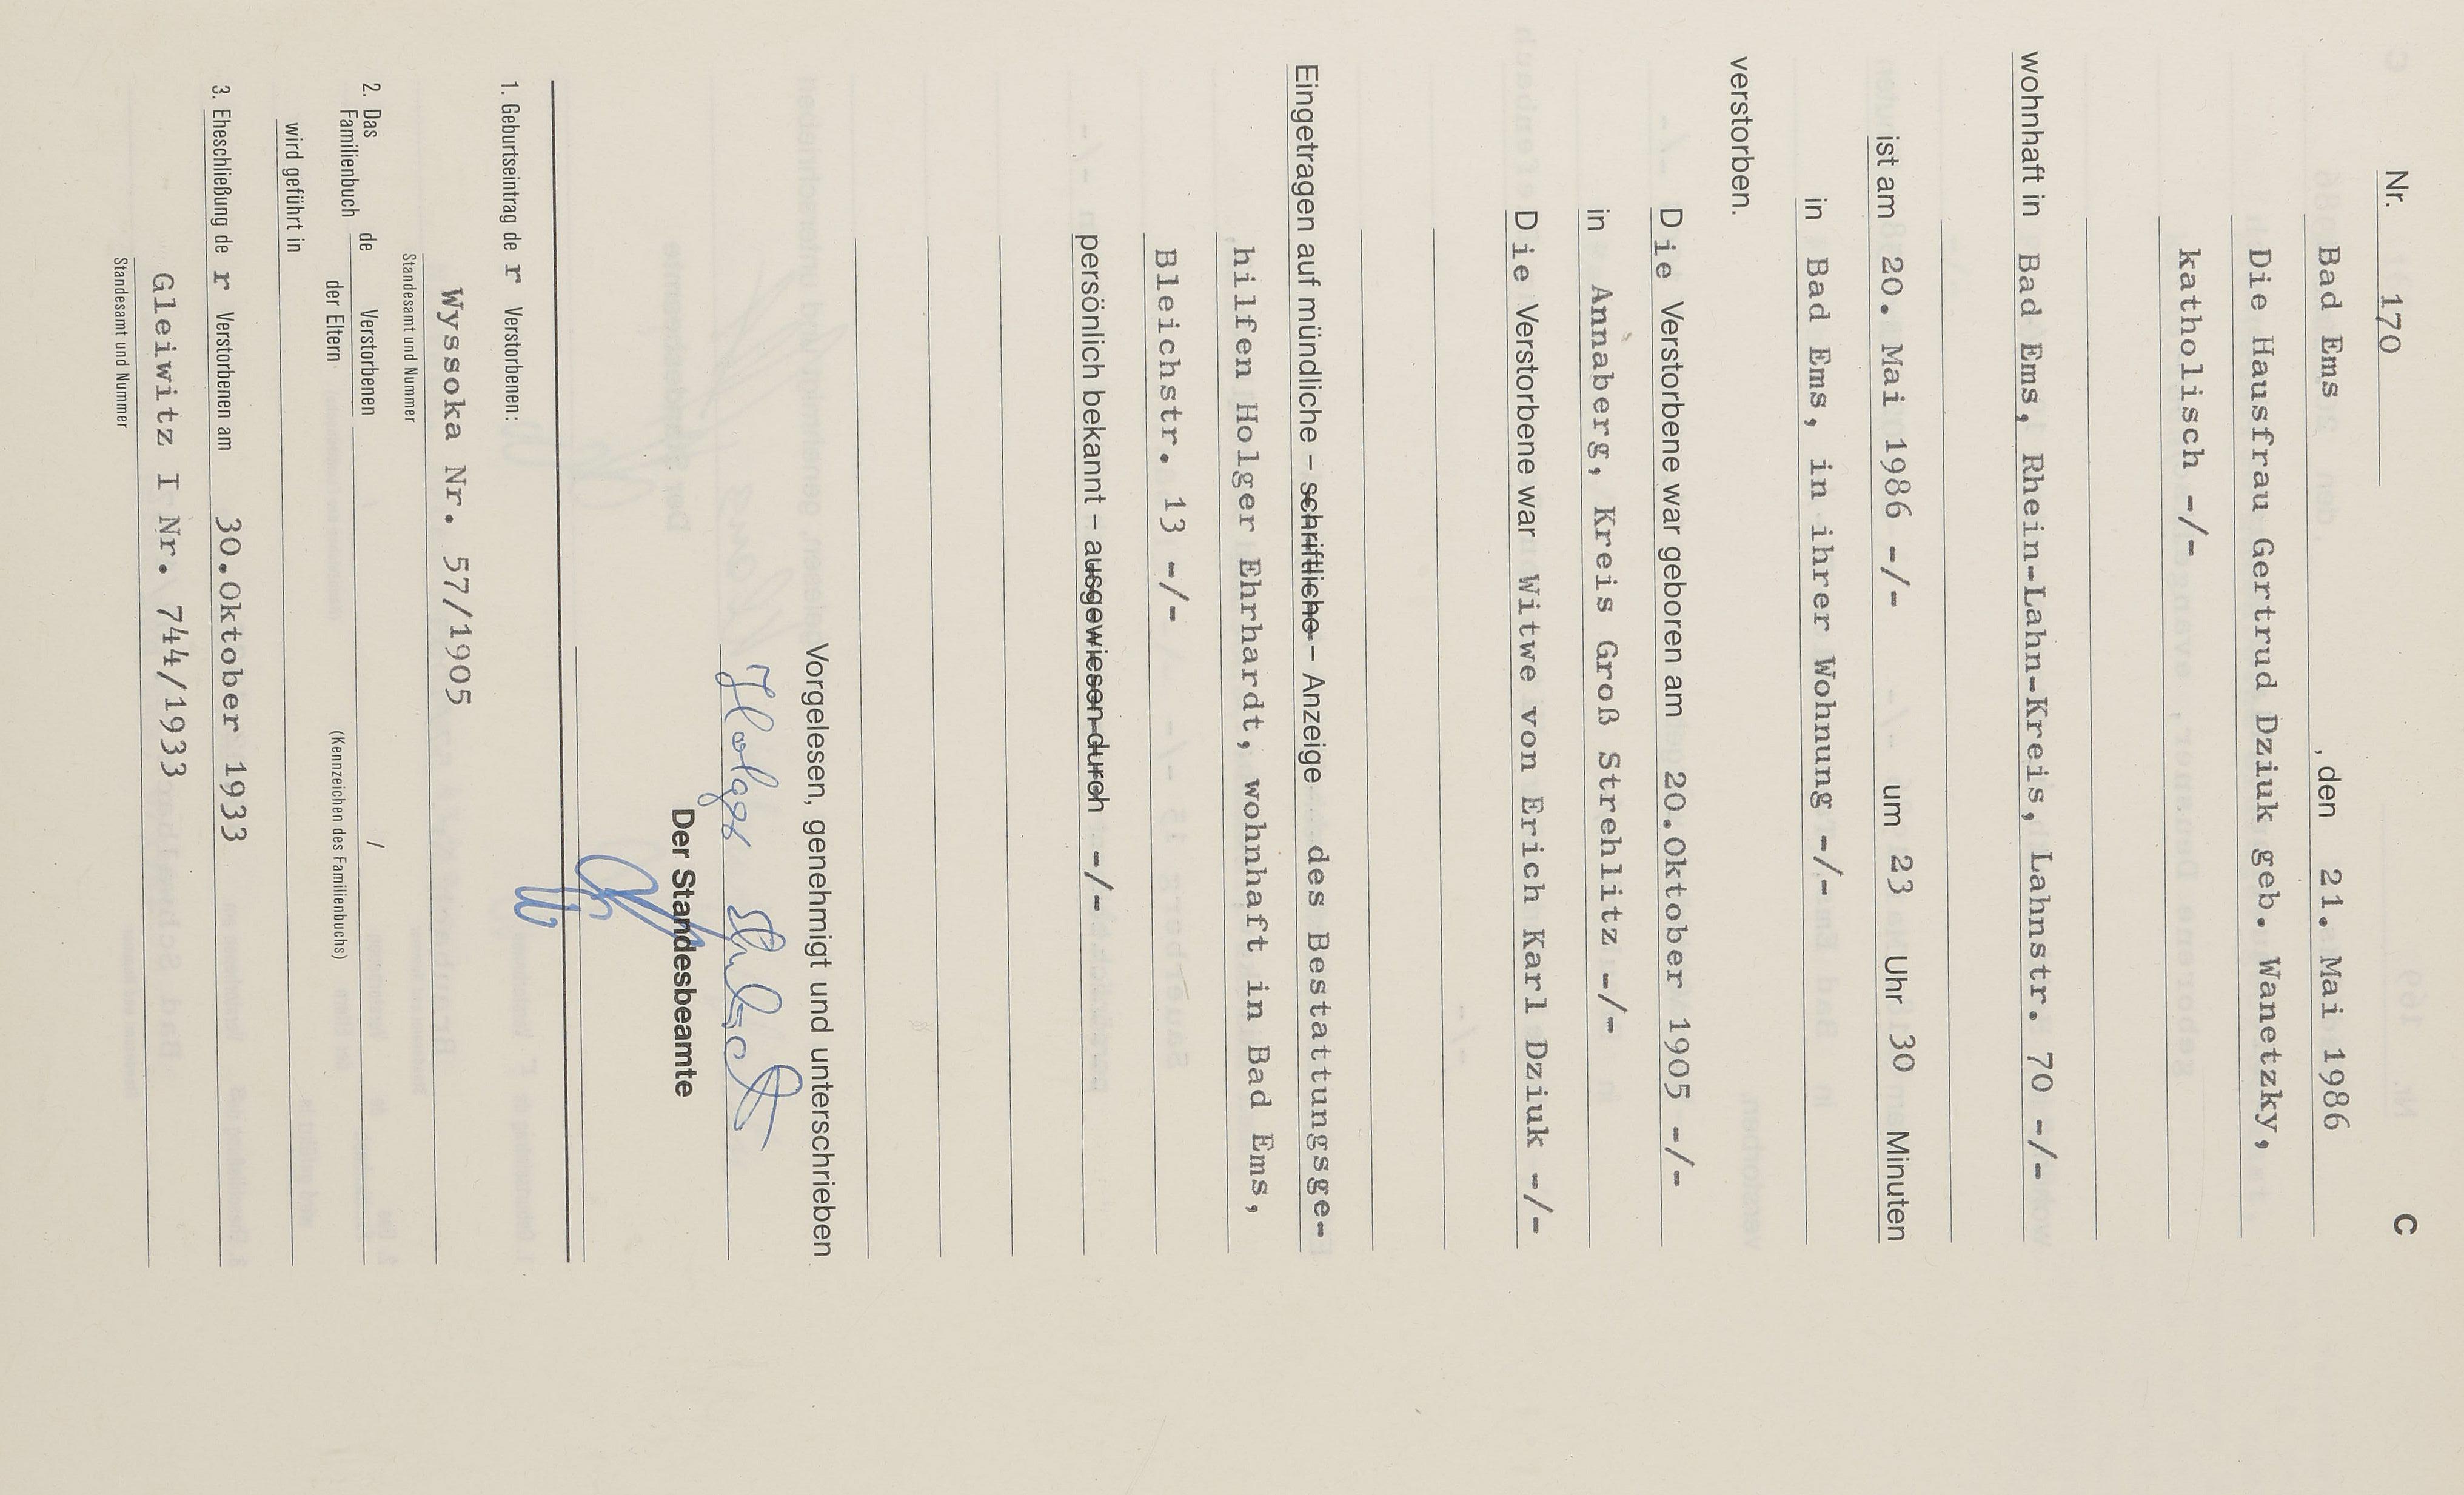 Nr. 170 C
Bad Ems , den 21. Mai 1986
Die Hausfrau Gertrud Dziuk geb. Wanetzky,
katholisch -/-
wohnhaft in Bad Ems, Rhein-Lahn-Kreis, Lahnstr. 70 -/-
ist am 20. Mai 1986 -/- um 23 Uhr 30 Minuten
in Bad Ems, in ihrer Wohnung -/-
verstorben.
Die Verstorbene war geboren am 20.Oktober 1905 -/-
in Annaberg, Kreis Groß Strehlitz -/-
Die Verstorbene war Witwe von Erich Karl Dziuk -/-
Eingetragen auf mündliche – schriftliche – Anzeige des Bestattungsge-
hilfen Holger Ehrhardt, wohnhaft in Bad Ems,
Bleichstr. 13 -/-
persönlich bekannt – ausgewiesen durch -/-
Vorgelesen, genehmigt und unterschrieben
Holger Ehrhardt
Der Standesbeamte
1. Geburtseintrag der Verstorbenen:
Wyssoka Nr. 57/1905
Standesamt und Nummer
2. Das Familienbuch de Verstorbenen / der Eltern /
wird geführt in
(Kennzeichen des Familienbuchs)
3. Eheschließung der Verstorbenen am 30.Oktober 1933
Gleiwitz I Nr. 744/1933
Standesamt und Nummer